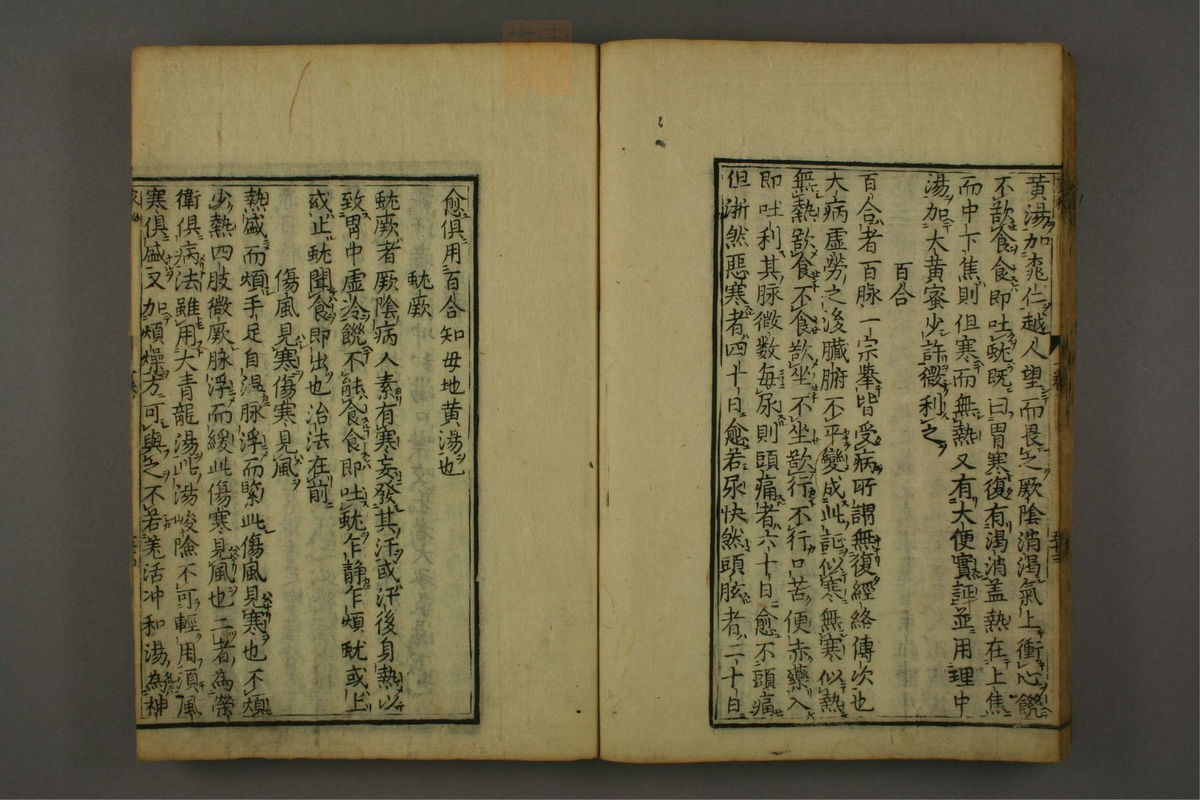 黃湯加桃仁越人望而畏之厥陰消渴氣上衝心饑
不欲食食即吐蚘既曰胃寒復有渴消盖熱在上焦
而中下焦則但寒而無熱又有大便實証並用理中
湯加大黃蜜少許微利之
百合
百合者百脉一宗舉皆受病所謂無復經絡傳次也
大病虛勞之後臟腑不平變成此証似寒無寒似熱
無熱欲食不食欲坐不坐欲行不行口苦便赤藥入
即吐利其脉微数每尿則頭痛者六十日愈不頭痛
但淅然惡寒者四十日愈若尿快然頭眩者二十日
愈俱用百合知毋地黃湯也
蚘厥
蚘厥者厥陰病人素有寒妄發其汗或汗後身熱以
致胃中虛冷饑不能食食即吐蚘乍静乍煩蚘或上
或止蚘聞食即出也治法在前
傷風見寒傷寒見風
熱盛而煩手足自温脉浮而緊此傷風見寒也不煩
少熱四肢微厥脉浮而緩此傷寒見風也二者為榮
衛俱病法雖用大青龍湯此湯峻險不可輕用須風
寒俱盛又加煩燥方可與之不若羗活冲和湯為神